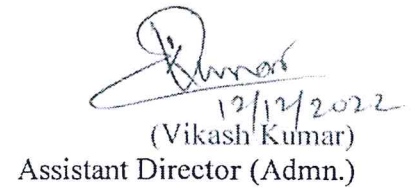 Kumar
12/12/2022
(Vikash Kumar)
Assistant Director (Admn.)